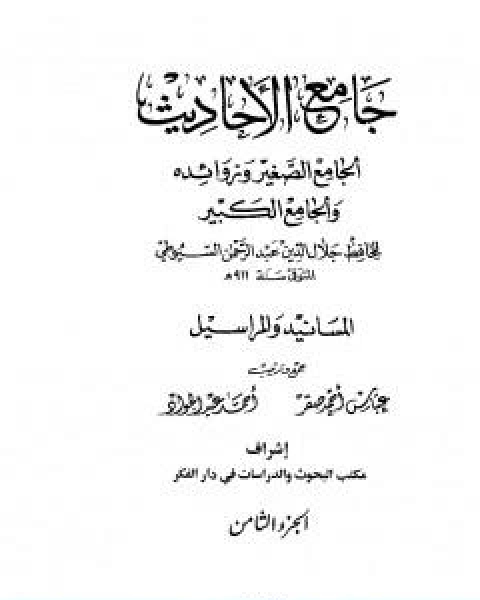 جَامِع الأَحَادِيث
الجَامِع الصَّغِير وَزَوَائِده
وَالجَامِع الكَبِير
لِلحَافِظ جَلَال الدِّين عَبْد الرَّحْمٰن السّيُوطِي
المتَوَفّى سَنَة ٩١١ هـ
المسَانِيد وَالمرَاسِيل
جمع وترتيب
عباس أحمد صقر أحمد عبد الجواد
إشراف
مكتب البحوث والدراسات في دار الفكر
الجزء الثامن